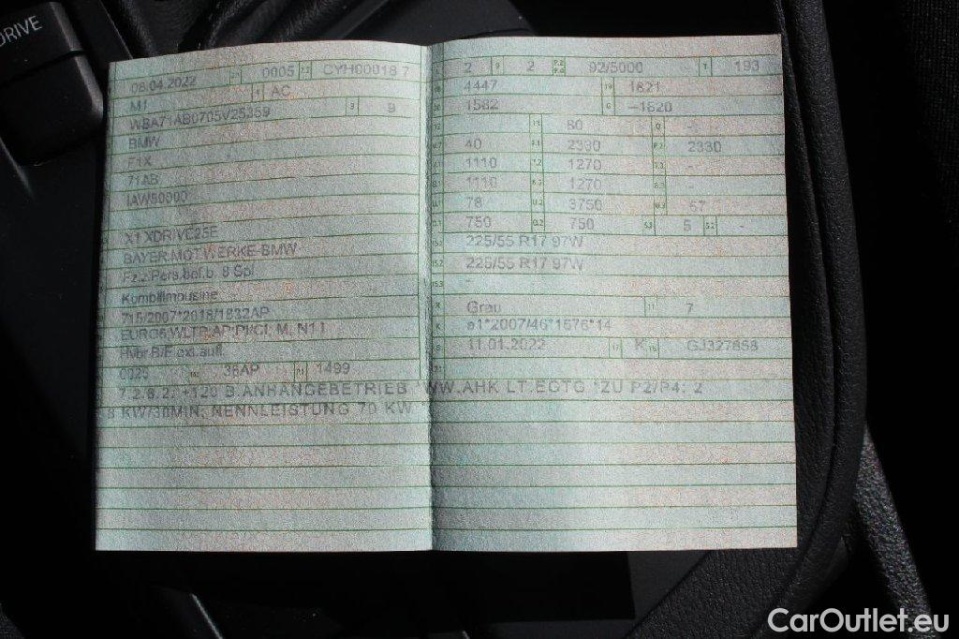 DRIVE
08.04.2022 0005 CYH00018 7
M1 AC
WBA71AB0705V25359 9
BMW
F1X
71AB
IAW50000
X1 XDRIVE25E
BAYER.MOT.WERKE-BMW
Fz.z.Pers.bef.b. 8 Spl
Kombilimousine
715/2007*2018/1832AP
EURO6 WLTP AP;PI/CI, M, N1 I
Hybr.B/E ext.aufl.
0025 36AP 1499
2 2 92/5000 193
4447 1821
1582 –1820
80 -
40 2330 2330
1110 1270 -
1110 1270 -
78 3750 57
750 750 5 -
225/55 R17 97W
225/55 R17 97W
-
Grau 7
e1*2007/46*1676*14
11.01.2022 K GJ327858
7.2/8.2: +120 B.ANHANGEBETRIEB *WW.AHK LT.EGTG *ZU P2/P4: 2
8 KW/30MIN; NENNLEISTUNG 70 KW
CarOutlet.eu